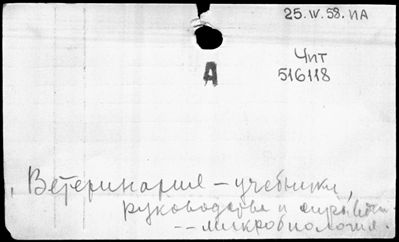 25.IV.58. ИА
Чит
516118
А
Ветеринария – учебники,
руководства и
-- микробиология.